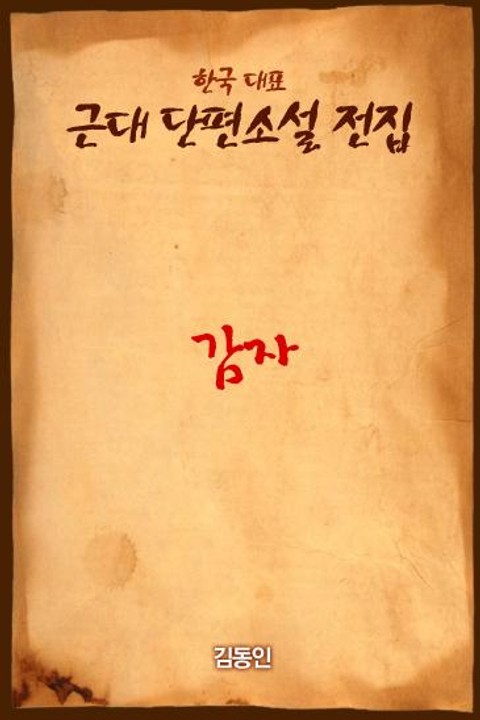 한국 대표
근대 단편소설 전집
감자
김동인